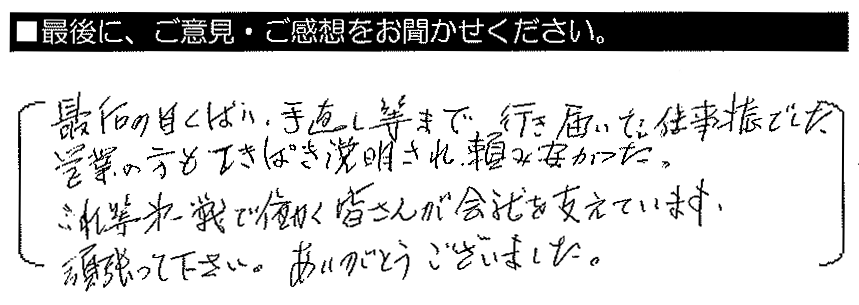 ■最後に、ご意見・ご感想をお聞かせください。
最后の目くばり、手直し等まで 行き届いた仕事振でした
営業の方もてきぱき説明され、頼み安かった。
これ等第一戦で働く皆さんが会社を支えています、
頑張って下さい。ありがとうございました。